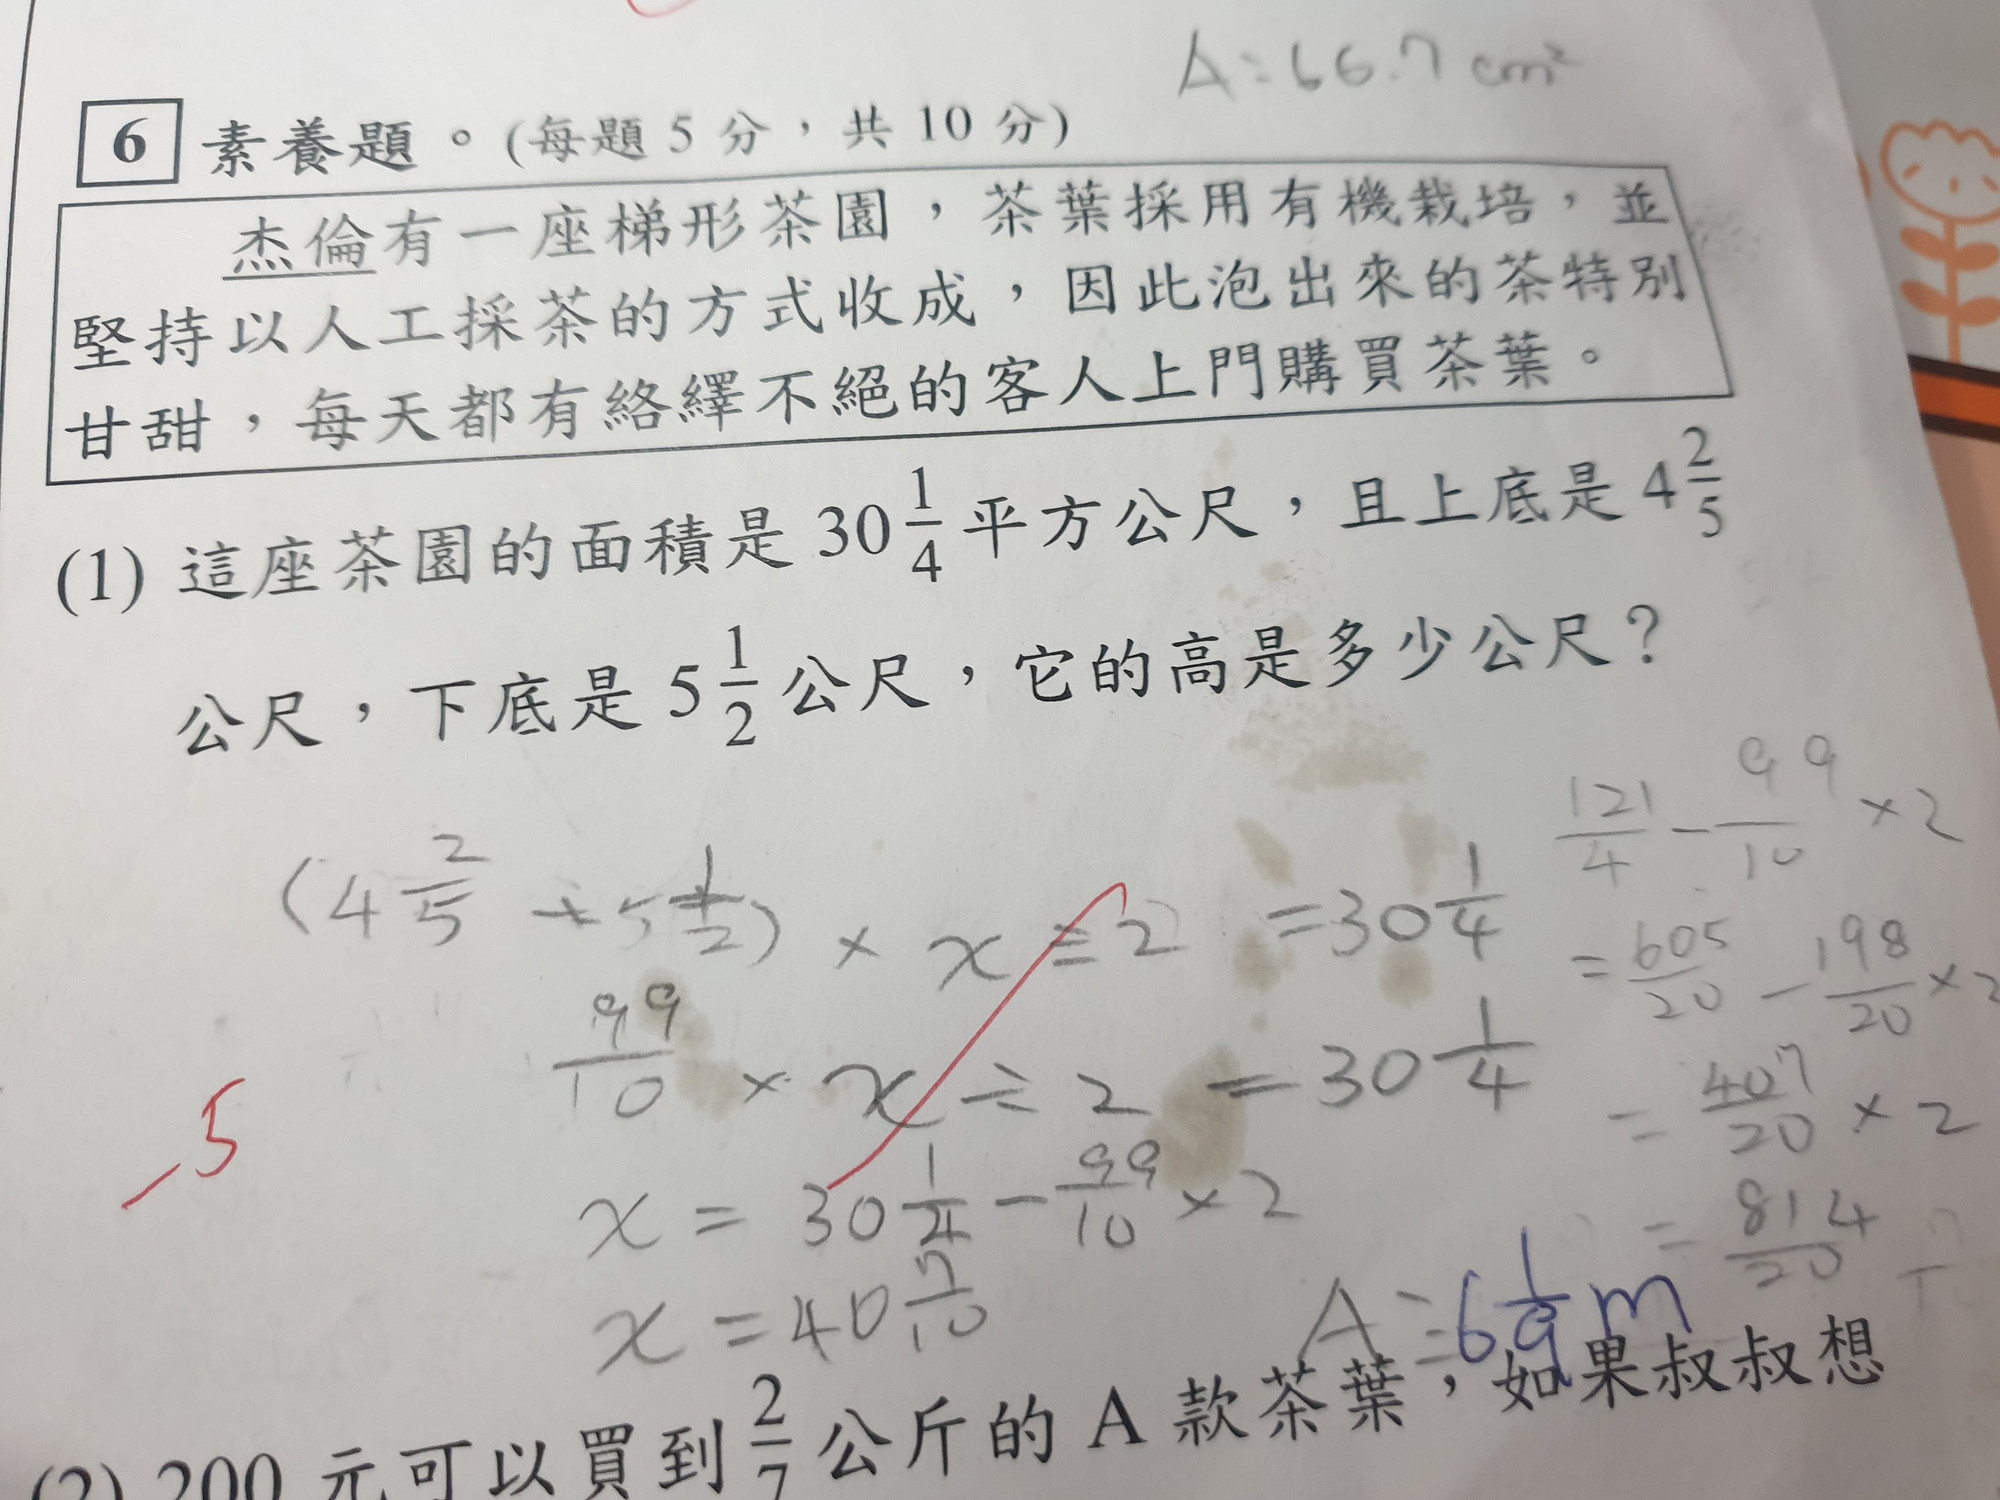 A=66.7 cm²
6 素養題。(每題 5 分，共 10 分)
杰倫有一座梯形茶園，茶葉採用有機栽培，並
堅持以人工採茶的方式收成，因此泡出來的茶特別
甘甜，每天都有絡繹不絕的客人上門購買茶葉。
(1) 這座茶園的面積是 30 1/4 平方公尺，且上底是 4 2/5
公尺，下底是 5 1/2 公尺，它的高是多少公尺？
121/4 - 99/10 × 2
(4 2/5 + 5 1/2) × x ÷ 2 = 30 1/4
= 605/20 - 198/20 × 2
99/10 × x ÷ 2 = 30 1/4
= 407/20 × 2
-5
x = 30 1/4 - 99/10 × 2
= 814/20
x = 40 7/10
A = 6 1/9 m
(2) 200 元可以買到 2/7 公斤的 A 款茶葉，如果叔叔想